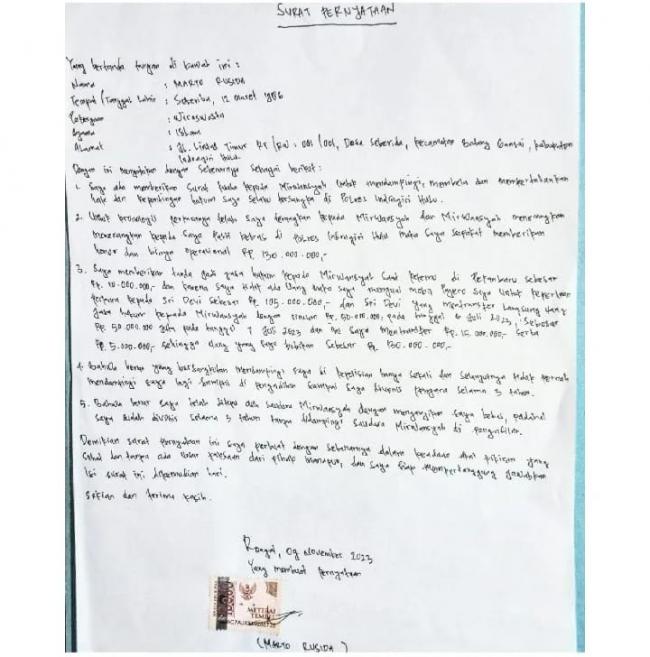 SURAT PERNYATAAN
Yang bertanda tangan di bawah ini :
Nama : MARTO RUSIDA
Tempat / Tanggal Lahir : Seberida, 12 Maret 1986
Pekerjaan : Wiraswasta
Agama : Islam
Alamat : Jl. Lintas Timur Rt/Rw : 001/001, Desa Seberida, Kecamatan Batang Gansal, Kabupaten
Indragiri Hulu
Dengan ini menyatakan dengan Sebenarnya Sebagai berikut :
1. Saya ada memberikan Surat kepada Mirwansyah untuk mendampingi, membela dan
hak dan kepentingan hukum saya selaku tersangka di Polres Indragiri Hulu.
2. Untuk perkaranya telah saya terangkan kepada Mirwansyah dan Mirwansyah menerangkan
menerangkan kepada saya Pasti bebas di Polres Indragiri Hulu maka Saya sepakat memberikan
honor dan biaya operasional Rp 130.000.000,-
3. Saya memberikan tanda jadi jasa hukum kepada Mirwansyah Saat ketemu di Pekanbaru sebesar
Rp. 10.000.000,- dan karena saya tidak ada uang maka saya menjual mobil Pajero saya untuk keperluan
kepada Sri Devi Sebesar Rp. 195.000.000,- dan Sri Devi yang mentransfer langsung uang
jasa hukum kepada Mirwansyah dengan rincian Rp. 50.000.000, pada tanggal 6 Juli 2023, Sebesar
Rp. 50.000.000 juta pada tanggal 7 Juli 2023 dan Saya Mentransfer Rp. 15.000.000,- Serta
Rp. 5.000.000,- sehingga uang yang saya berikan Sebesar Rp. 130.000.000,-
4. Bahwa benar yang bersangkutan mendampingi saya di kepolisian hanya sekali dan selanjutnya tidak pernah
mendampingi saya lagi sampai di pengadilan sampai saya divonis penjara selama 3 tahun.
5. Bahwa benar saya telah ditipu oleh saudara Mirwansyah dengan menjanjikan saya bebas, padahal
saya sudah divonis selama 3 tahun tanpa didampingi saudara Mirwansyah di pengadilan.
Demikian surat pernyataan ini saya perbuat dengan sebenarnya dalam keadaan akal pikiran yang
sehat dan tanpa ada unsur paksaan dari pihak manapun, dan saya siap mempertanggung jawabkan
isi surat ini dikemudian hari.
Sekian dan terima kasih.
Rengat, 09 November 2023
Yang membuat pernyataan
10000
METERAI
TEMPEL
(MARTO RUSIDA)